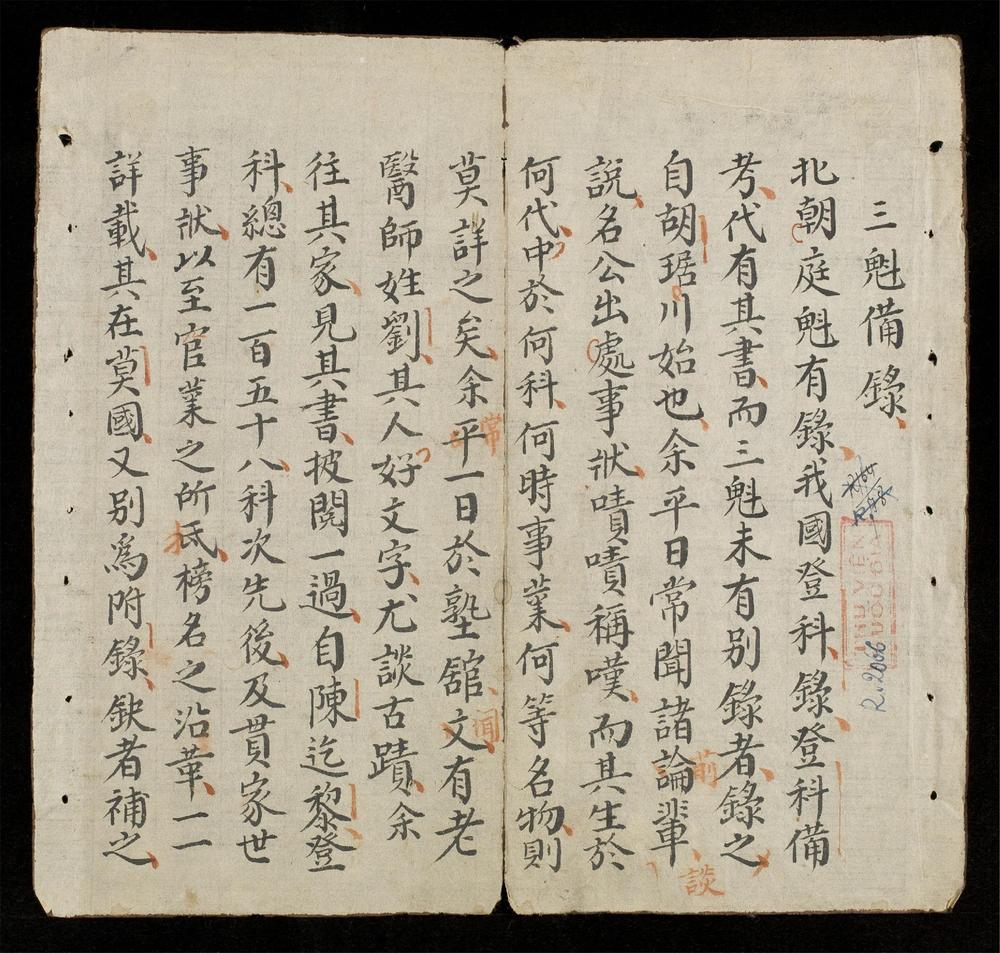 三魁備錄
北朝庭魁有錄我國登科錄登科備
考代有其書而三魁未有別錄者錄之
自胡琚川始也余平日常聞諸論輩
前
談
說名公出處事狀嘖嘖稱嘆而其生於
何代中於何科何時事業何等名物則
莫詳之矣余平一日於塾舘文有老
常
聞
醫師姓劉其人好文字尤談古蹟余
往其家見其書披閱一過自陳迄黎登
科總有一百五十八科次先後及貫家世
事狀以至官業之所氐榜名之沿革一一
詳載其在莫國又別爲附錄缺者補之
R.2006